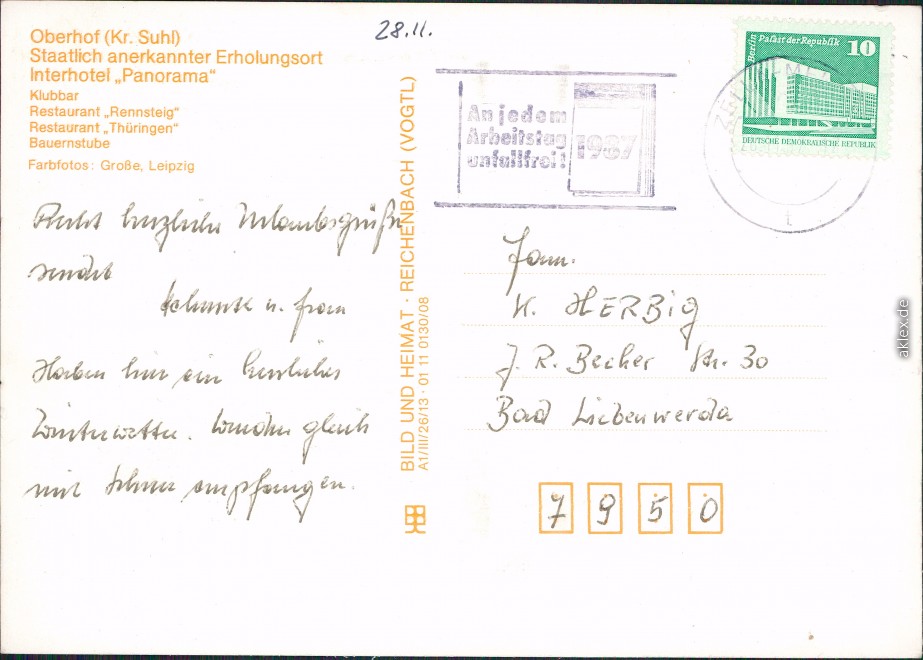 28.11.
Oberhof (Kr. Suhl)
Staatlich anerkannter Erholungsort
Interhotel „Panorama“
Klubbar
Restaurant „Rennsteig“
Restaurant „Thüringen“
Bauernstube
Farbfotos: Große, Leipzig
Recht herzliche Urlaubsgrüße
sendet
u. Frau
Haben hier ein herrliches
Winterwetter. Wurden gleich
mit Schnee empfangen.
BILD UND HEIMAT · REICHENBACH (VOGTL)
A1/III/26/13 · 01 11 0130/08
An jedem
Arbeitstag
unfallfrei!
1987
Berlin Palast der Republik
10
DEUTSCHE DEMOKRATISCHE REPUBLIK
Fam.
K. HERBIG
J. R. Becher Str. 30
Bad Liebenwerda
7950
aklex.de